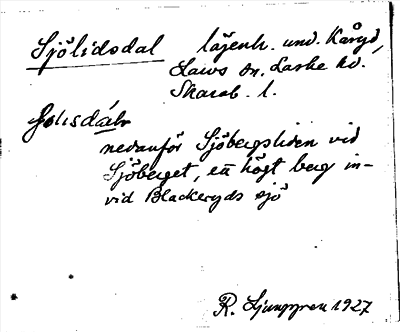 Sjölidsdal lägenh. und. Kåryd,
Daws sn. Laske hd.
Skarab. l.
nedanför Sjöbergsliden vid
Sjöberget, ett högt berg in-
vid Blackeryds sjö
R. Ljunggren 1927